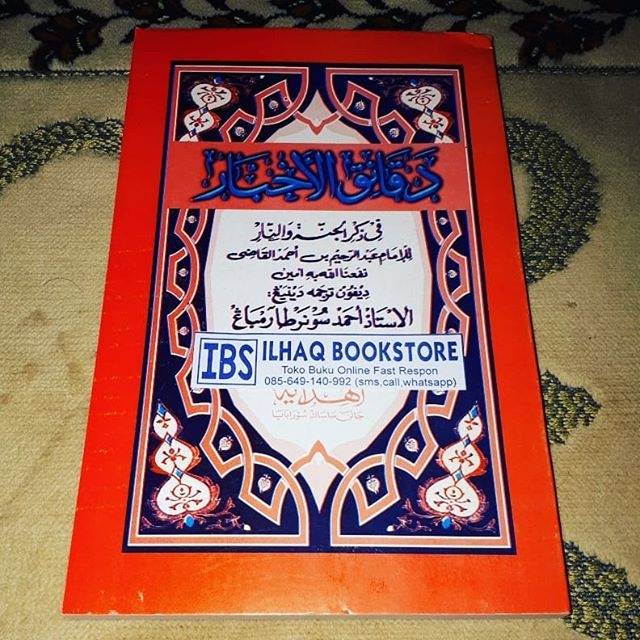 دقائق الأخبار
في ذكر الجنة والنار
للإمام عبد الرحيم بن أحمد القاضى
نفعنا الله به امين
ديفون ترجمه دينيڠ:
الاستاذ أحمد سونرطا رمباڠ
IBS ILHAQ BOOKSTORE
Toko Buku Online Fast Respon
085-649-140-992 (sms,call,whatsapp)
الهداية
سورابايا